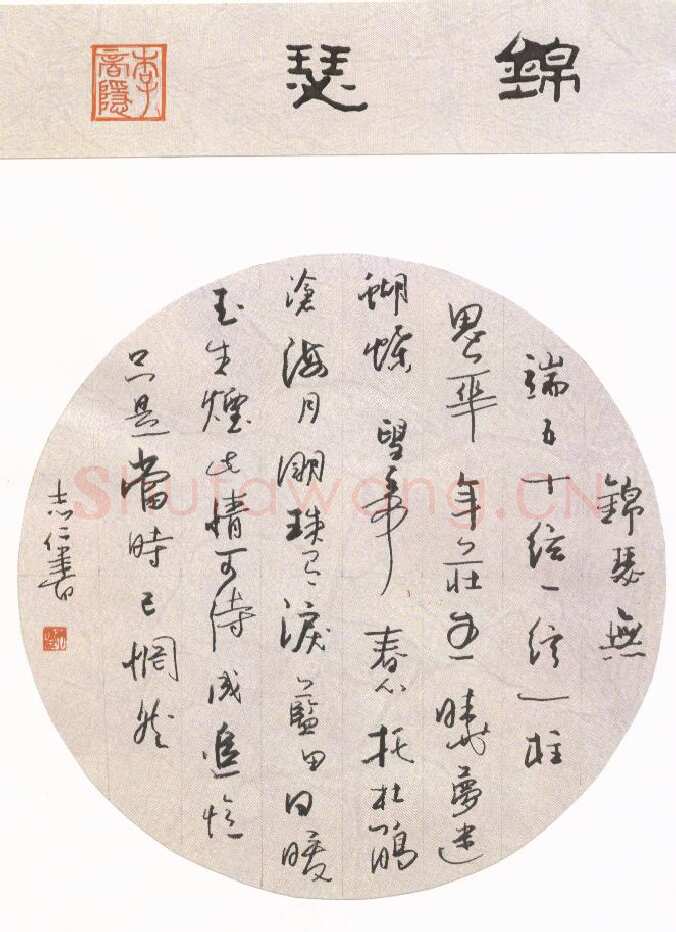 錦瑟
李商隱
錦瑟無
端五十絃一絃一柱
思華年莊生曉夢迷
蝴蝶望帝春心托杜鵑
滄海月明珠有淚藍田日暖
玉生煙此情可待成追憶
只是當時已惘然
志仁書
Shufawang.CN